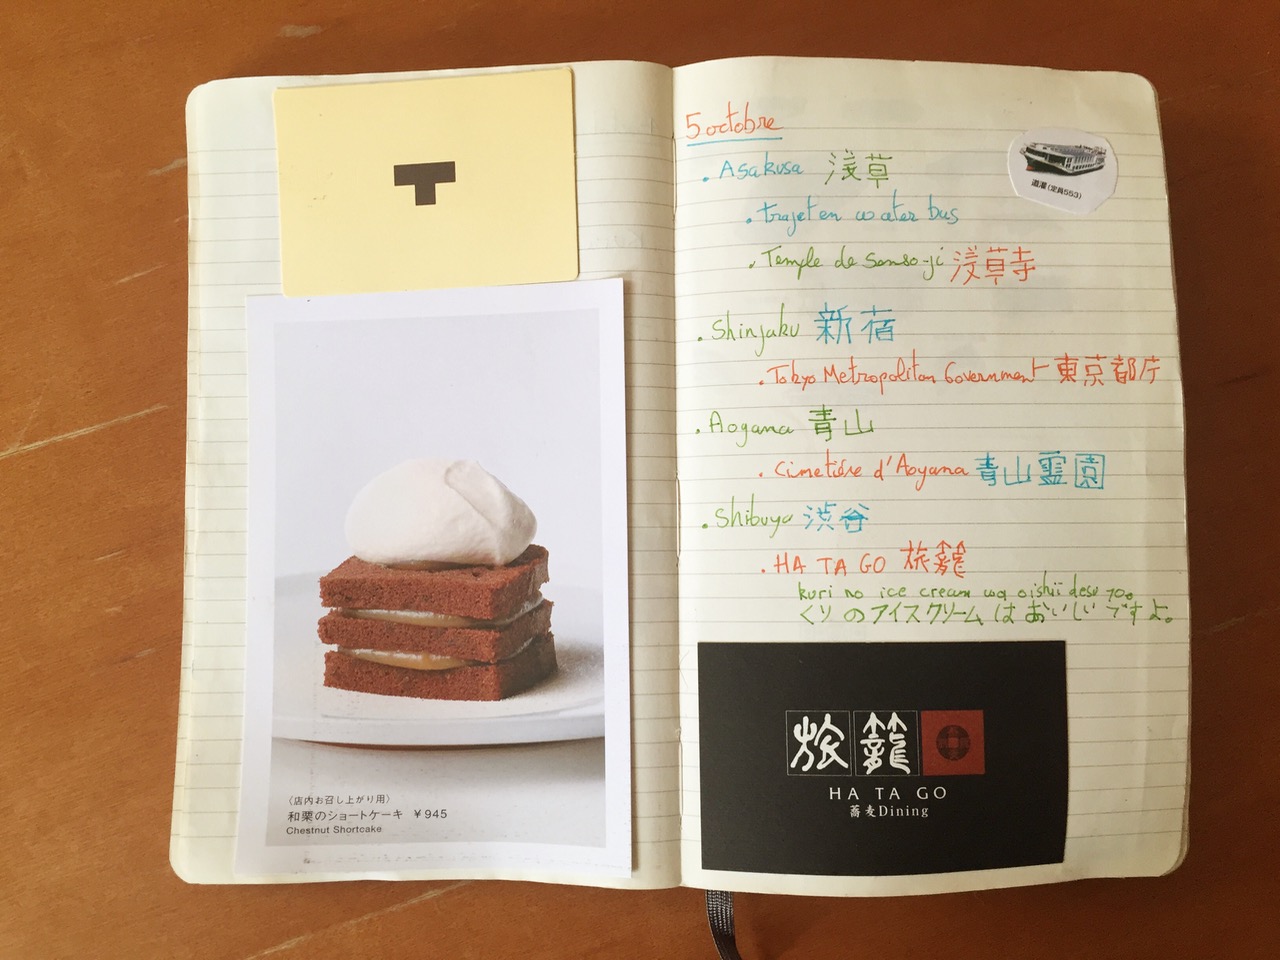 T
〈店内お召し上がり用〉
和栗のショートケーキ ¥945
Chestnut Shortcake
5 octobre
道灌(定員553)
. Asakusa 浅草
. trajet en water bus
. Temple de Senso-ji 浅草寺
. Shinjuku 新宿
. Tokyo Metropolitan Government 東京都庁
. Aoyama 青山
. Cimetière d'Aoyama 青山霊園
. Shibuya 渋谷
. HA TA GO 旅籠
kuri no ice cream wa oishii desu yo.
くりのアイスクリームはおいしいですよ。
旅籠
HA TA GO
蕎麦Dining